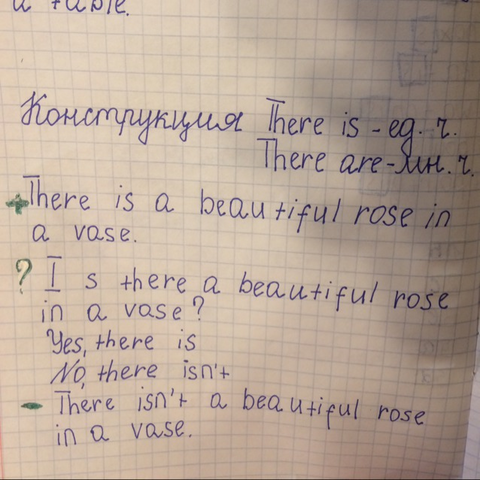 a table.
Конструкция There is - ед. ч.
There are - мн. ч.
+ There is a beautiful rose in
a vase.
? I s there a beautiful rose
in a vase?
Yes, there is
No, there isn't
- There isn't a beautiful rose
in a vase.